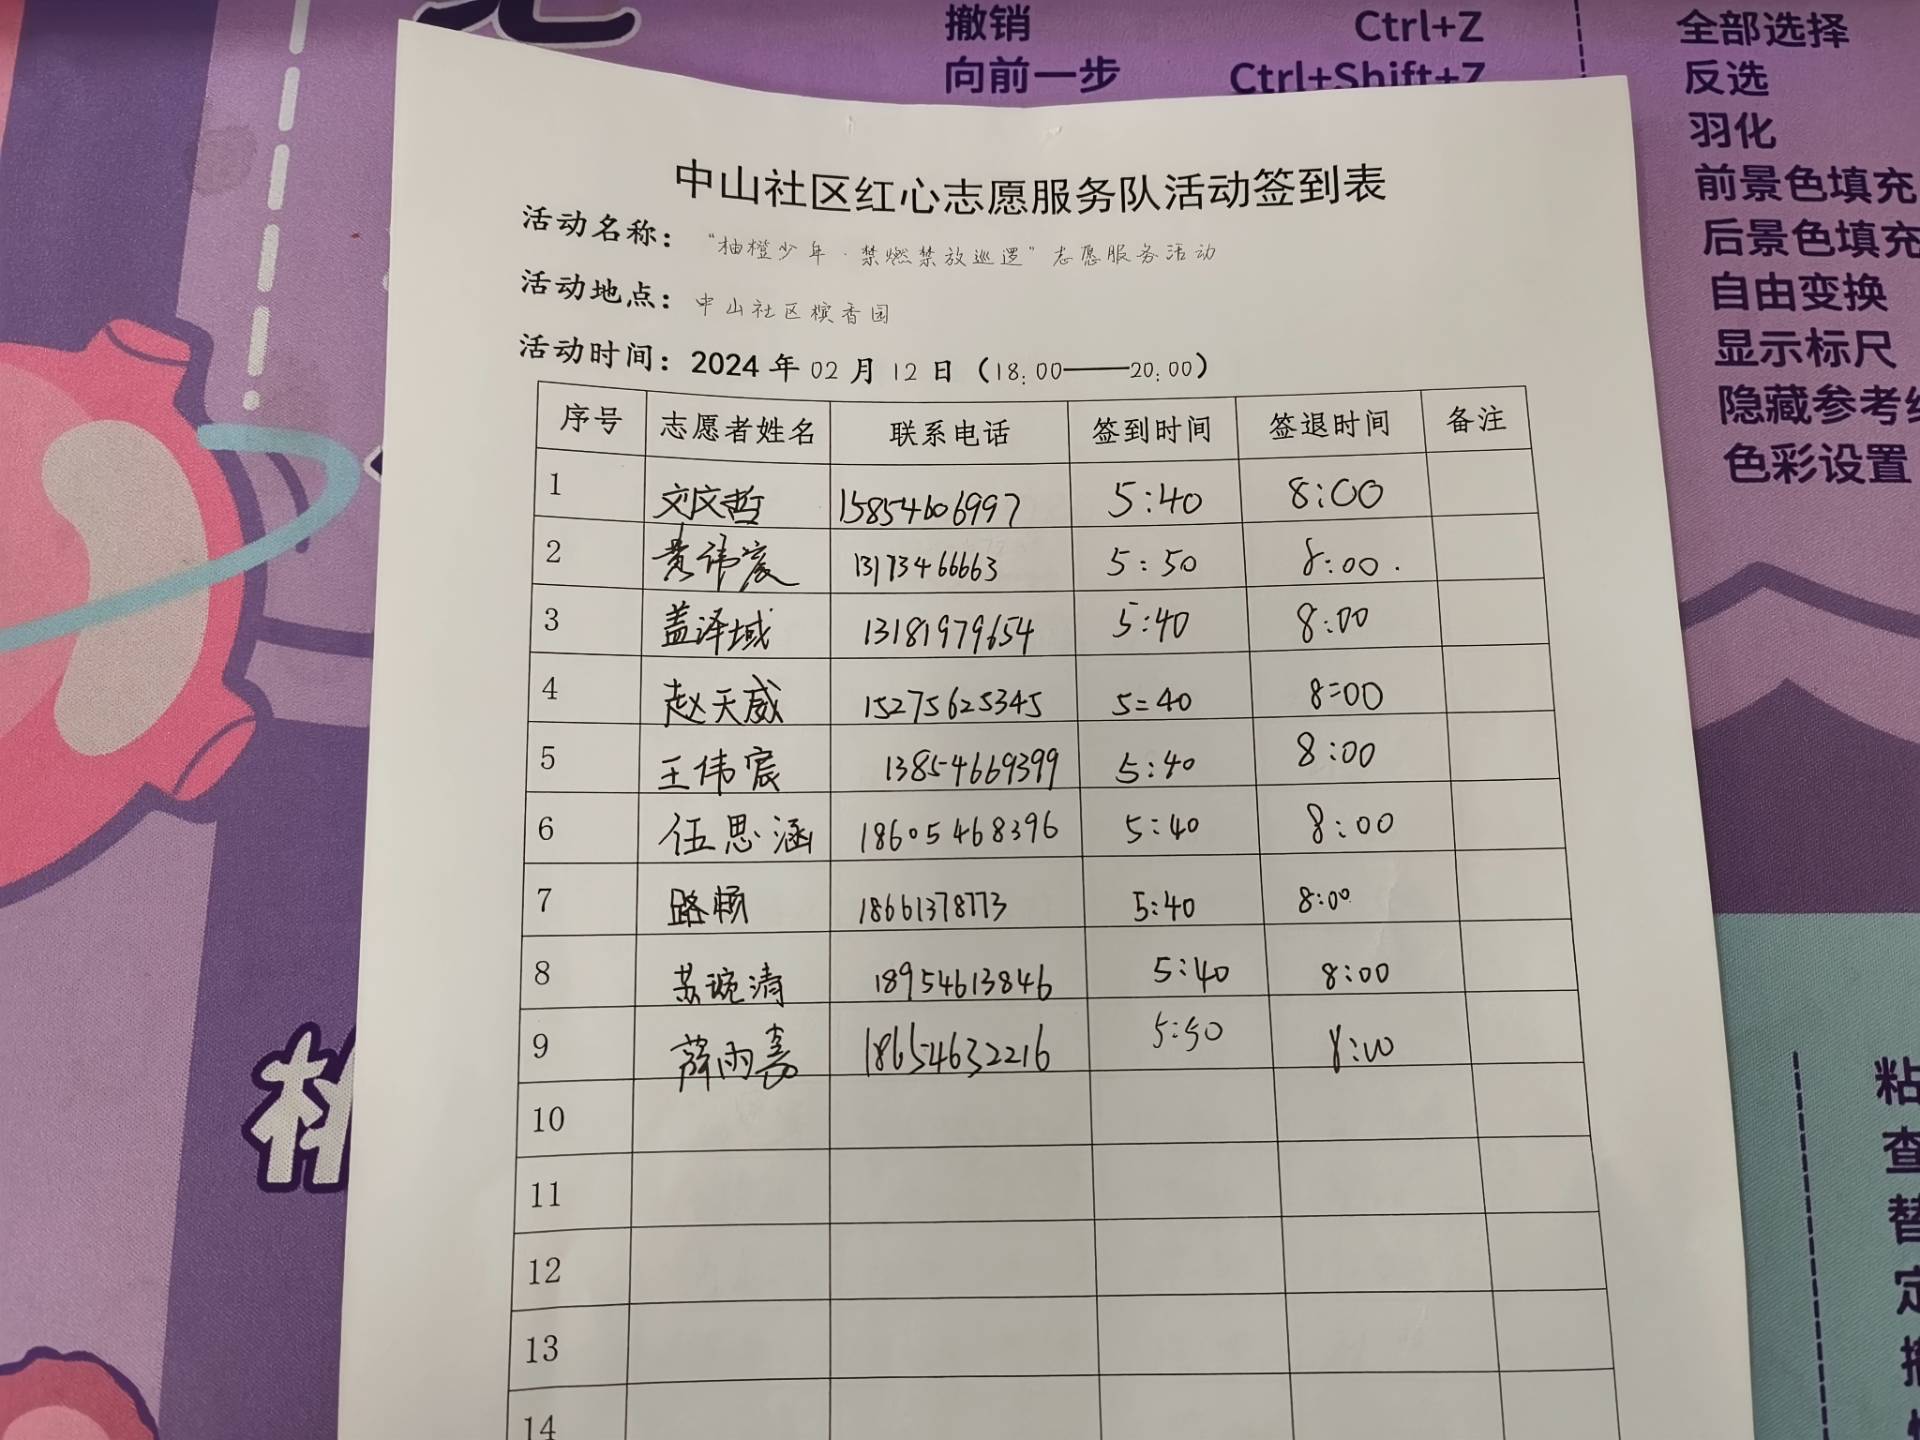 撤销 Ctrl+Z
向前一步 Ctrl+Shift+Z
全部选择
反选
羽化
前景色填充
后景色填充
自由变换
显示标尺
隐藏参考
色彩设置
中山社区红心志愿服务队活动签到表
活动名称：“柚橙少年·禁燃禁放巡逻”志愿服务活动
活动地点：中山社区槟香园
活动时间：2024年02月12日（18:00——20:00）
序号 志愿者姓名 联系电话 签到时间 签退时间 备注
1 刘文哲 15854606997 5:40 8:00
2 黄祎宸 13173466663 5:50 8:00.
3 盖泽域 13181979654 5:40 8:00
4 赵天威 15275625345 5=40 8=00
5 王伟宸 13854669399 5:40 8:00
6 伍思涵 18605468396 5:40 8:00
7 路畅 18661378773 5:40 8:00
8 苏琬清 18954613846 5:40 8:00
9 薛雨嘉 18654632216 5:50 8:00
10
11
12
13
14
粘
查
替
定